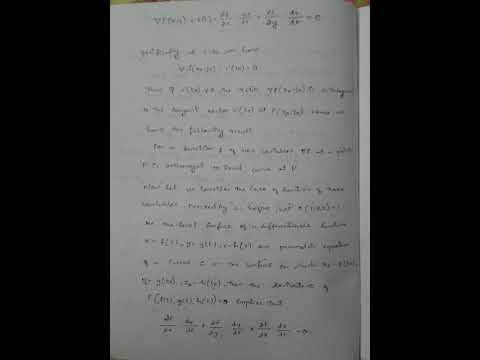 ∇f(x,y) . r'(t) = ∂f/∂x dx/dt + ∂f/∂y dy/dt = 0
at t = to we have
∇f(x0,y0) . r'(t0) = 0
Thus if the vector ∇f(x0,y0) is orthogonal
to the tangent vector r'(t0) at P(x0,y0) Hence we
have the following result
For a function f of two variables ∇f at a point
P is orthogonal to level curve at P
Now let us consider the case of function of three
variables. Proceeding as before, let
be the level surface of a differentiable function
y = g(t), z = h(t) are parametric equation
of a curve C on the surface for which x0 = f(t0),
y0 = g(t0), z0 = h(t0), then the derivative of
F(f(t), g(t), h(t)) = 0 implies that
∂F/∂x dx/dt + ∂F/∂y dy/dt + ∂F/∂z dz/dt = 0